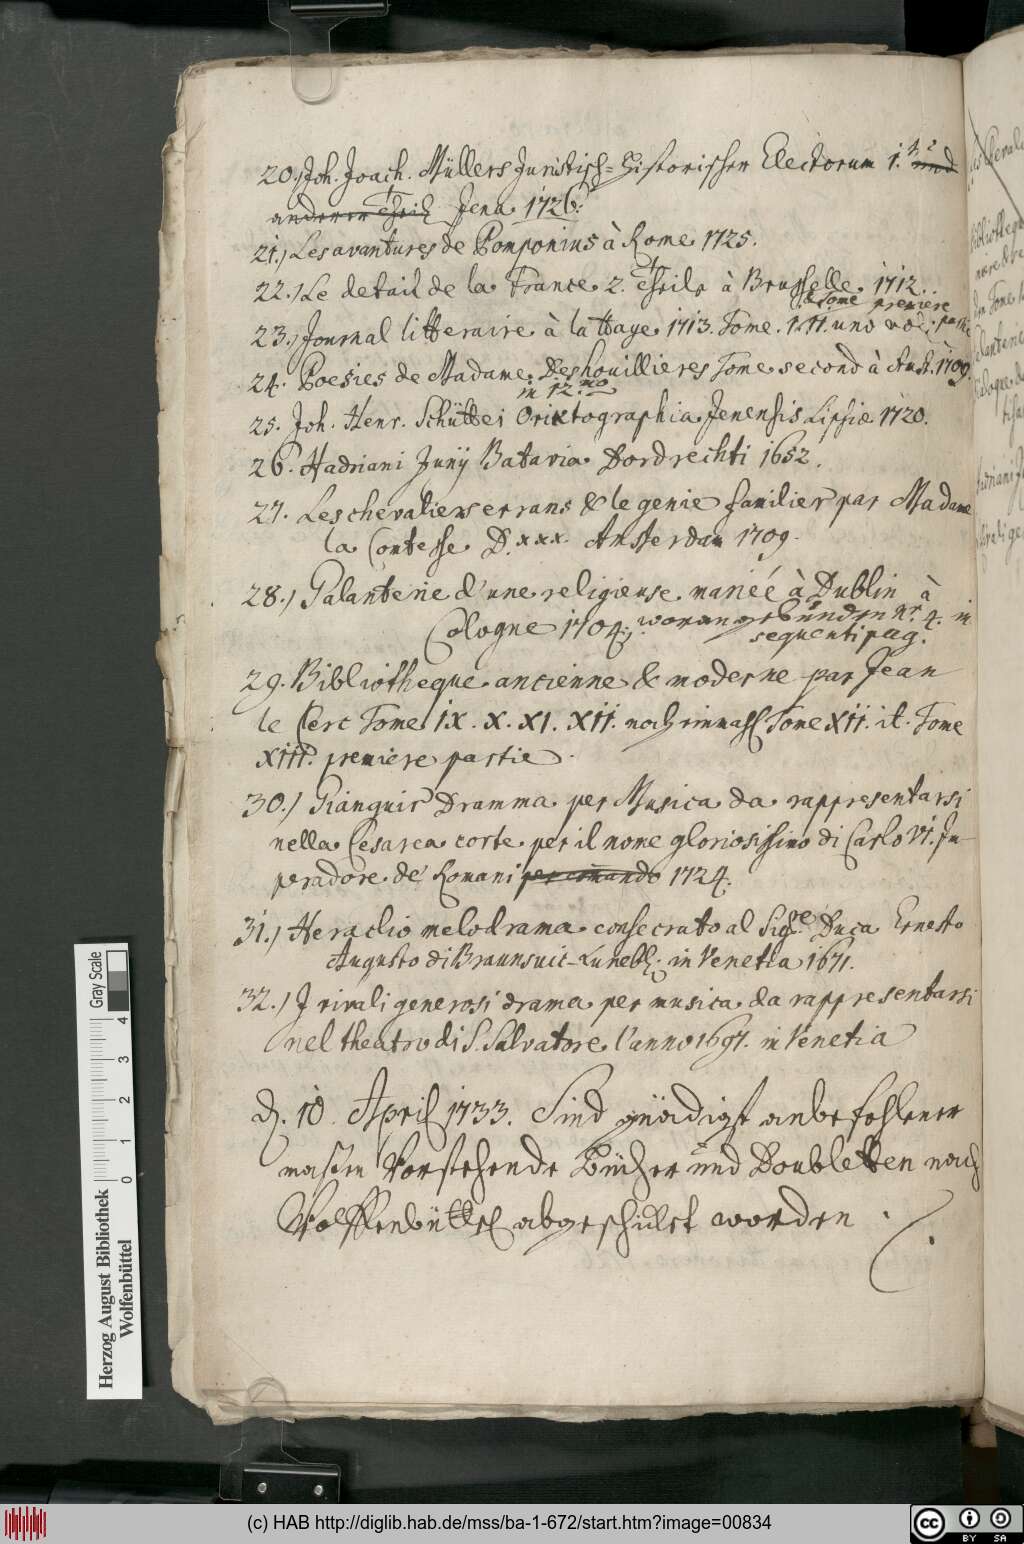 20.) Joh. Joach. Müllers Juristisch-Historischer Electorum 1. und
anderer Theil Jena 1726.
21.) Les avantures de Pomponius à Rome 1725.
22.) Le detail de la France 2. Theile à Brusselle 1712.
& Tome premiere
23.) Journal litteraire à la Haye 1713. Tome. 1. II. und
24. Poesies de Madame Deshouillieres Tome second à Amst. 1709.
in 12.mo
25. Joh. Henr. Schüttei Oriktographia Jenensis Lipsiæ 1720.
26. Hadriani Junÿ Batavia Dordrechti 1652.
27. Les chevaliers errans & le genie familier par Madame
la Contesse D.xxx. Amsterdam 1709.
28.) Galanterie d'une religieuse mariée à Dublin à
Cologne 1704; woran gebunden nr. 4. in
sequenti pag.
29. Bibliotheque ancienne & moderne par Jean
le Clerc Tome IX. X. XI. XII. noch einmahl Tome XII. it. Tome
XIII. premiere partie.
30.) Gianguir Dramma per Musica da rappresentarsi
nella Cesarea corte per il nome gloriosissimo di Carlo VI. Im-
peradore de' Romani per comando 1724.
31.) Heraclio melodrama consecrato al Sig.re Duca Ernesto
Augusto di Braunsuic-Luneb. in Venetia 1671.
32.) I rivali generosi drama per musica da rappresentarsi
nel theatro di S. Salvatore l'anno 1697. in Venetia
d. 10. April 1733. Sind gnädigst anbefohlener
maßen Vorstehende Bücher und Doubletten nach
Wolffenbüttel abgeschickt worden.
Herzog August Bibliothek
Wolfenbüttel
Gray Scale
0 1 2 3 4
(c) HAB http://diglib.hab.de/mss/ba-1-672/start.htm?image=00834
cc BY SA